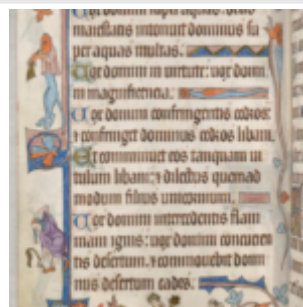 Vox domini super aquas: deus
maiestatis intonuit dominus su
per aquas multas.
Vox domini in uirtute: uox domini
in magnificencia.
Vox domini confringentis cedros:
⁊ confringet dominus cedros libani.
Et comminuet eas tanquam ui
tulum libani: ⁊ dilectus quemad
modum filius unicornium.
Vox domini intercidentis flam
mam ignis: uox domini concucien
tis desertum. ⁊ commouebit domi
nus desertum cades.